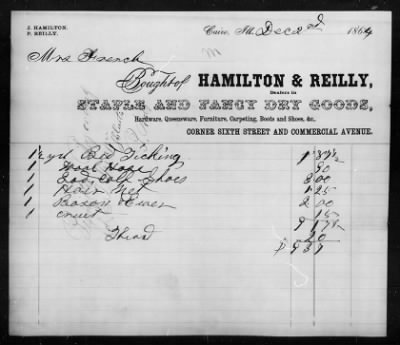 J. HAMILTON.
P. REILLY.
Cairo, Ill. Dec 2d 1864
Mrs French
Bought of HAMILTON & REILLY,
Dealers in
STAPLE AND FANCY DRY GOODS,
Hardware, Queensware, Furniture, Carpeting, Boots and Shoes, &c.
CORNER SIXTH STREET AND COMMERCIAL AVENUE.
1 yd Bed Ticking 1 37½
1 Hood 90
1 Calf Shoes 3 00
1 Hair Net 1 25
1 Bason Ewer 2 00
1 cruet 15
9 17½
Thread 20
$ 9 37